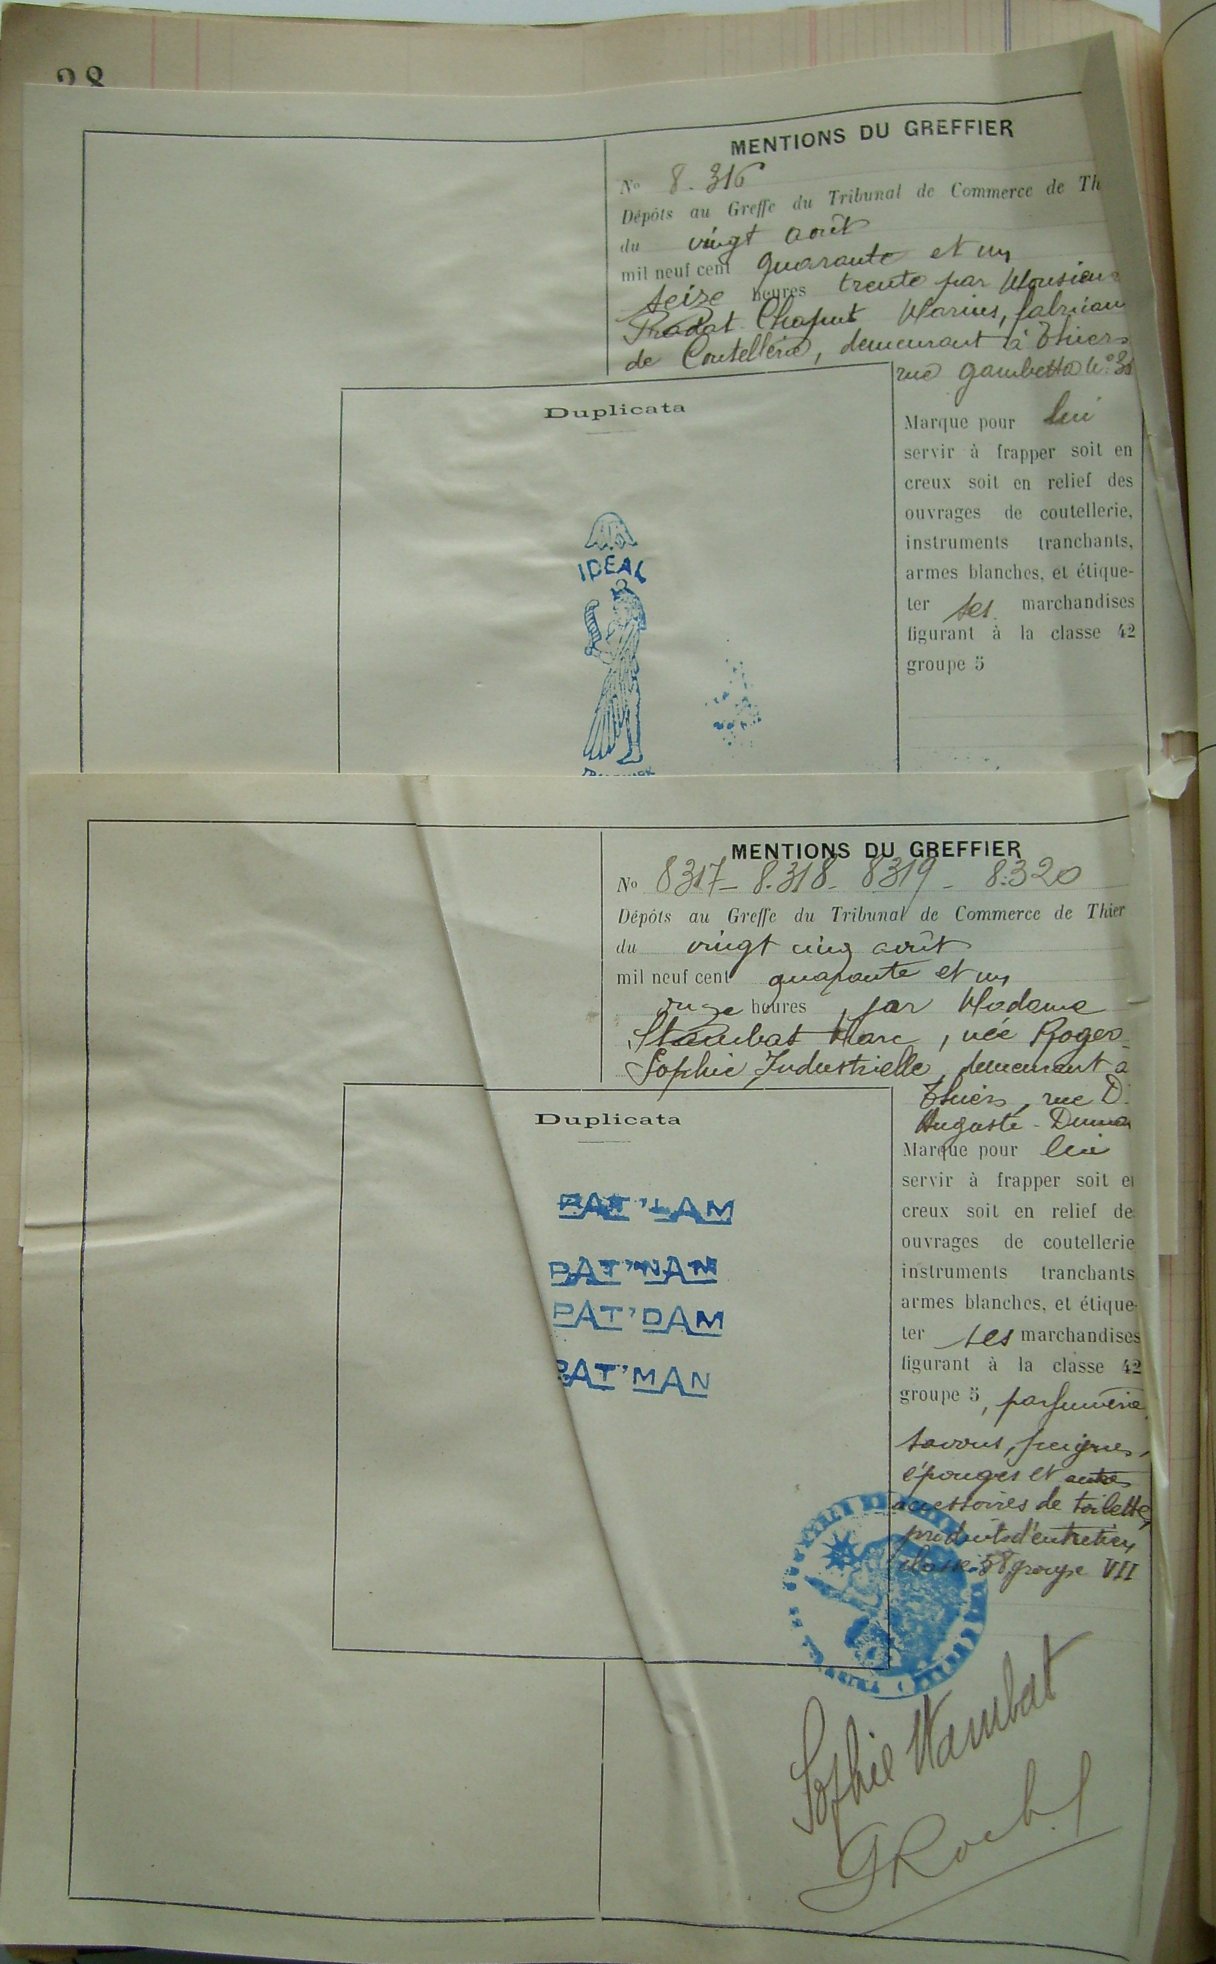 28
MENTIONS DU GREFFIER
No 8.316
Dépôts au Greffe du Tribunal de Commerce de Th
du vingt août
mil neuf cent quarante et un
seize heures trente par Monsieur
Pradat Chaput Marius, fabrican
de Coutellerie, demeurant à Thiers
rue Gambetta No
Duplicata
Marque pour lui
servir à frapper soit en
creux soit en relief des
ouvrages de coutellerie,
instruments tranchants,
armes blanches, et étique-
ter ses marchandises
figurant à la classe 42
groupe 5
IDEAL
MENTIONS DU GREFFIER
No 8317 - 8.318 - 8319 - 8.320
Dépôts au Greffe du Tribunal de Commerce de Thier
du vingt cinq août
mil neuf cent quarante et un
onze heures, par Madame
Marc, née Roger
Sophie, Industrielle, demeurant à
Thiers, rue D.
Auguste - Dumas
Duplicata
Marque pour lui
servir à frapper soit e
creux soit en relief de
ouvrages de coutellerie
instruments tranchants
armes blanches, et étique-
ter ses marchandises
figurant à la classe 42
groupe 5, parfumerie,
savons, peignes,
éponges et autres
accessoires de toilette,
produits d'entretien
classe 58 groupe VII
BAT'LAM
BAT'NAM
BAT'DAM
BAT'MAN
Sophie